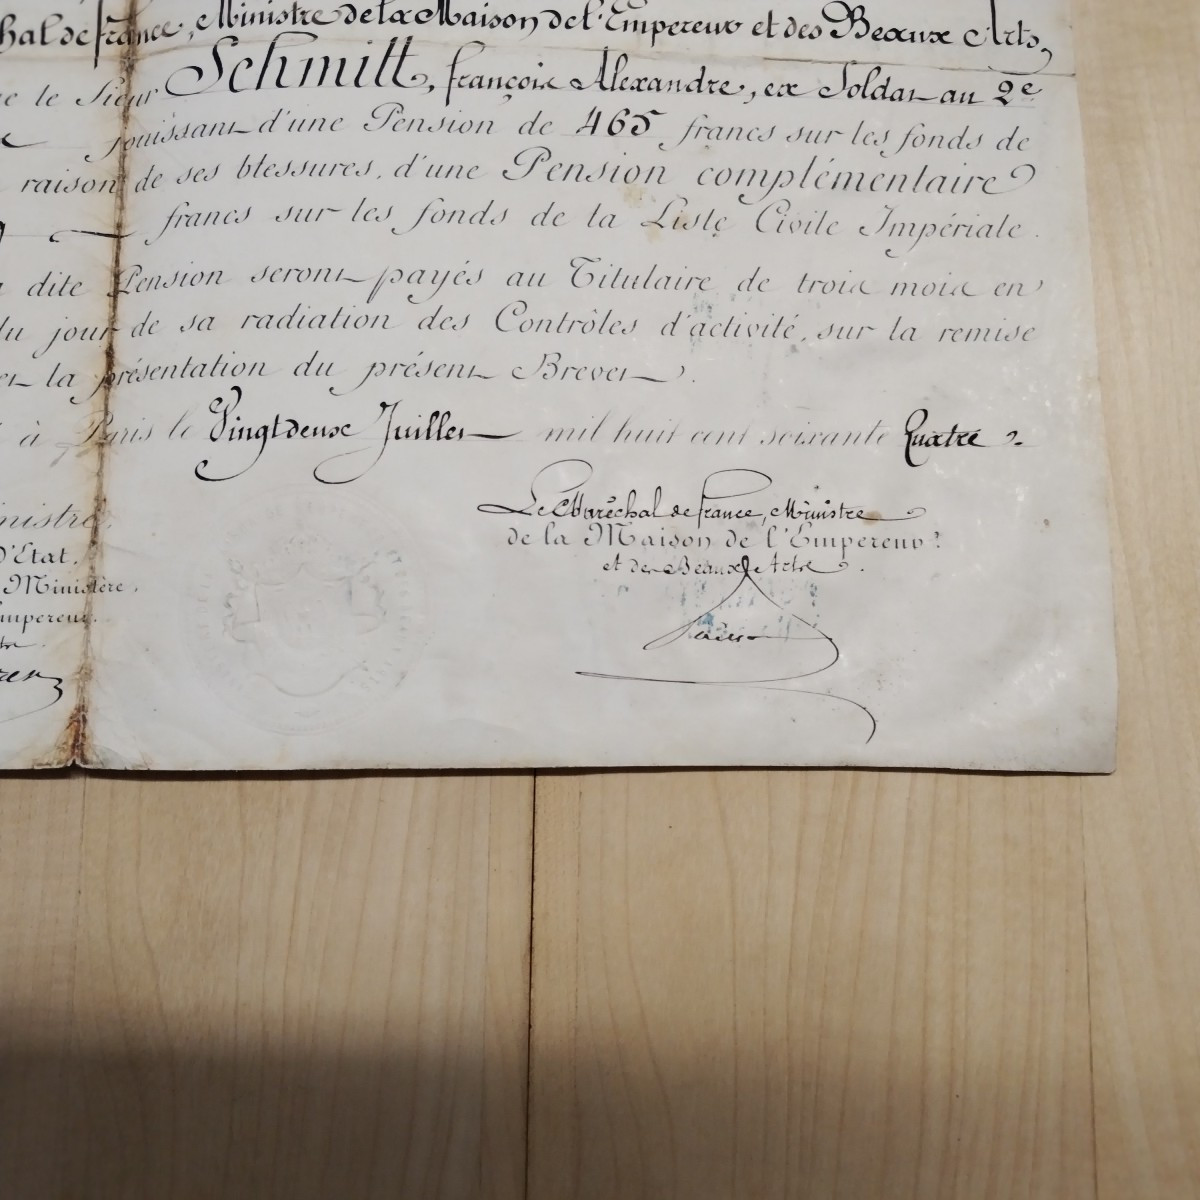 hal de france, Ministre de la Maison de l'Empereur et des Beaux Arts,
le Sieur Schmitt, françois Alexandre, ex Soldat au 2e
jouissant d'une Pension de 465 francs sur les fonds de
raison de ses blessures, d'une Pension complémentaire
francs sur les fonds de la Liste Civile Impériale.
dite Pension seront payés au Titulaire de trois mois en
du jour de sa radiation des Contrôles d'activité, sur la remise
et la présentation du présent Brevet.
à Paris le Vingt deux Juillet mil huit cent soixante Quatre.
Le Maréchal de france, Ministre
de la Maison de l'Empereur
et des Beaux Arts.
inistre
d'Etat.
Ministère,
mpereur